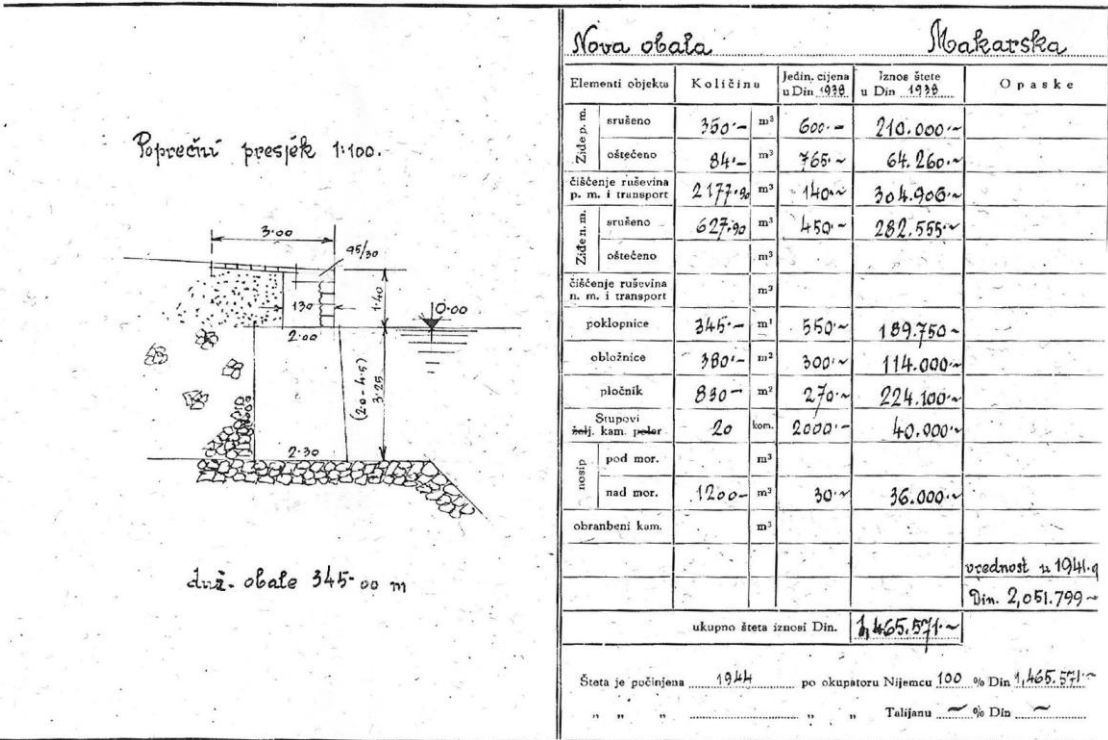 Poprečni presjek 1:100.
3·00
95/30
130
1·40
0·00
2·00
(2·0-4·5)
3·25
2·30
duž. obale 345·00 m
Nova obala Makarska
Elementi objekta Količina Jedin. cijena u Din 1938 Iznos štete u Din 1938 Opaske
Ziđe p. m. srušeno 350·- m³ 600·- 210.000·~
oštečeno 84·- m³ 765·~ 64.260·~
čišćenje ruševina p. m. i transport 2177·90 m³ 140·~ 304.906·~
Ziđe n. m. srušeno 627·90 m³ 450·~ 282.555·~
oštečeno m³
čišćenje ruševina n. m. i transport m³
poklopnice 345·- m¹ 550·~ 189.750~
obložnice 380·- m² 300·~ 114.000·~
pločnik 830- m² 270·~ 224.100·~
Stupovi
želj. kam. poler 20 kom. 2000·- 40.000·~
nosip pod mor. m³
nad mor. 1200- m³ 30·~ 36.000·~
obranbeni kam. m³
vrednost u 1941.g
Din. 2,051.799~
ukupno šteta iznosi Din. 1,465.571·~
Šteta je počinjena 1944 po okupatoru Nijemcu 100 % Din 1,465.571·~
" " " " " Talijanu ~ % Din ~